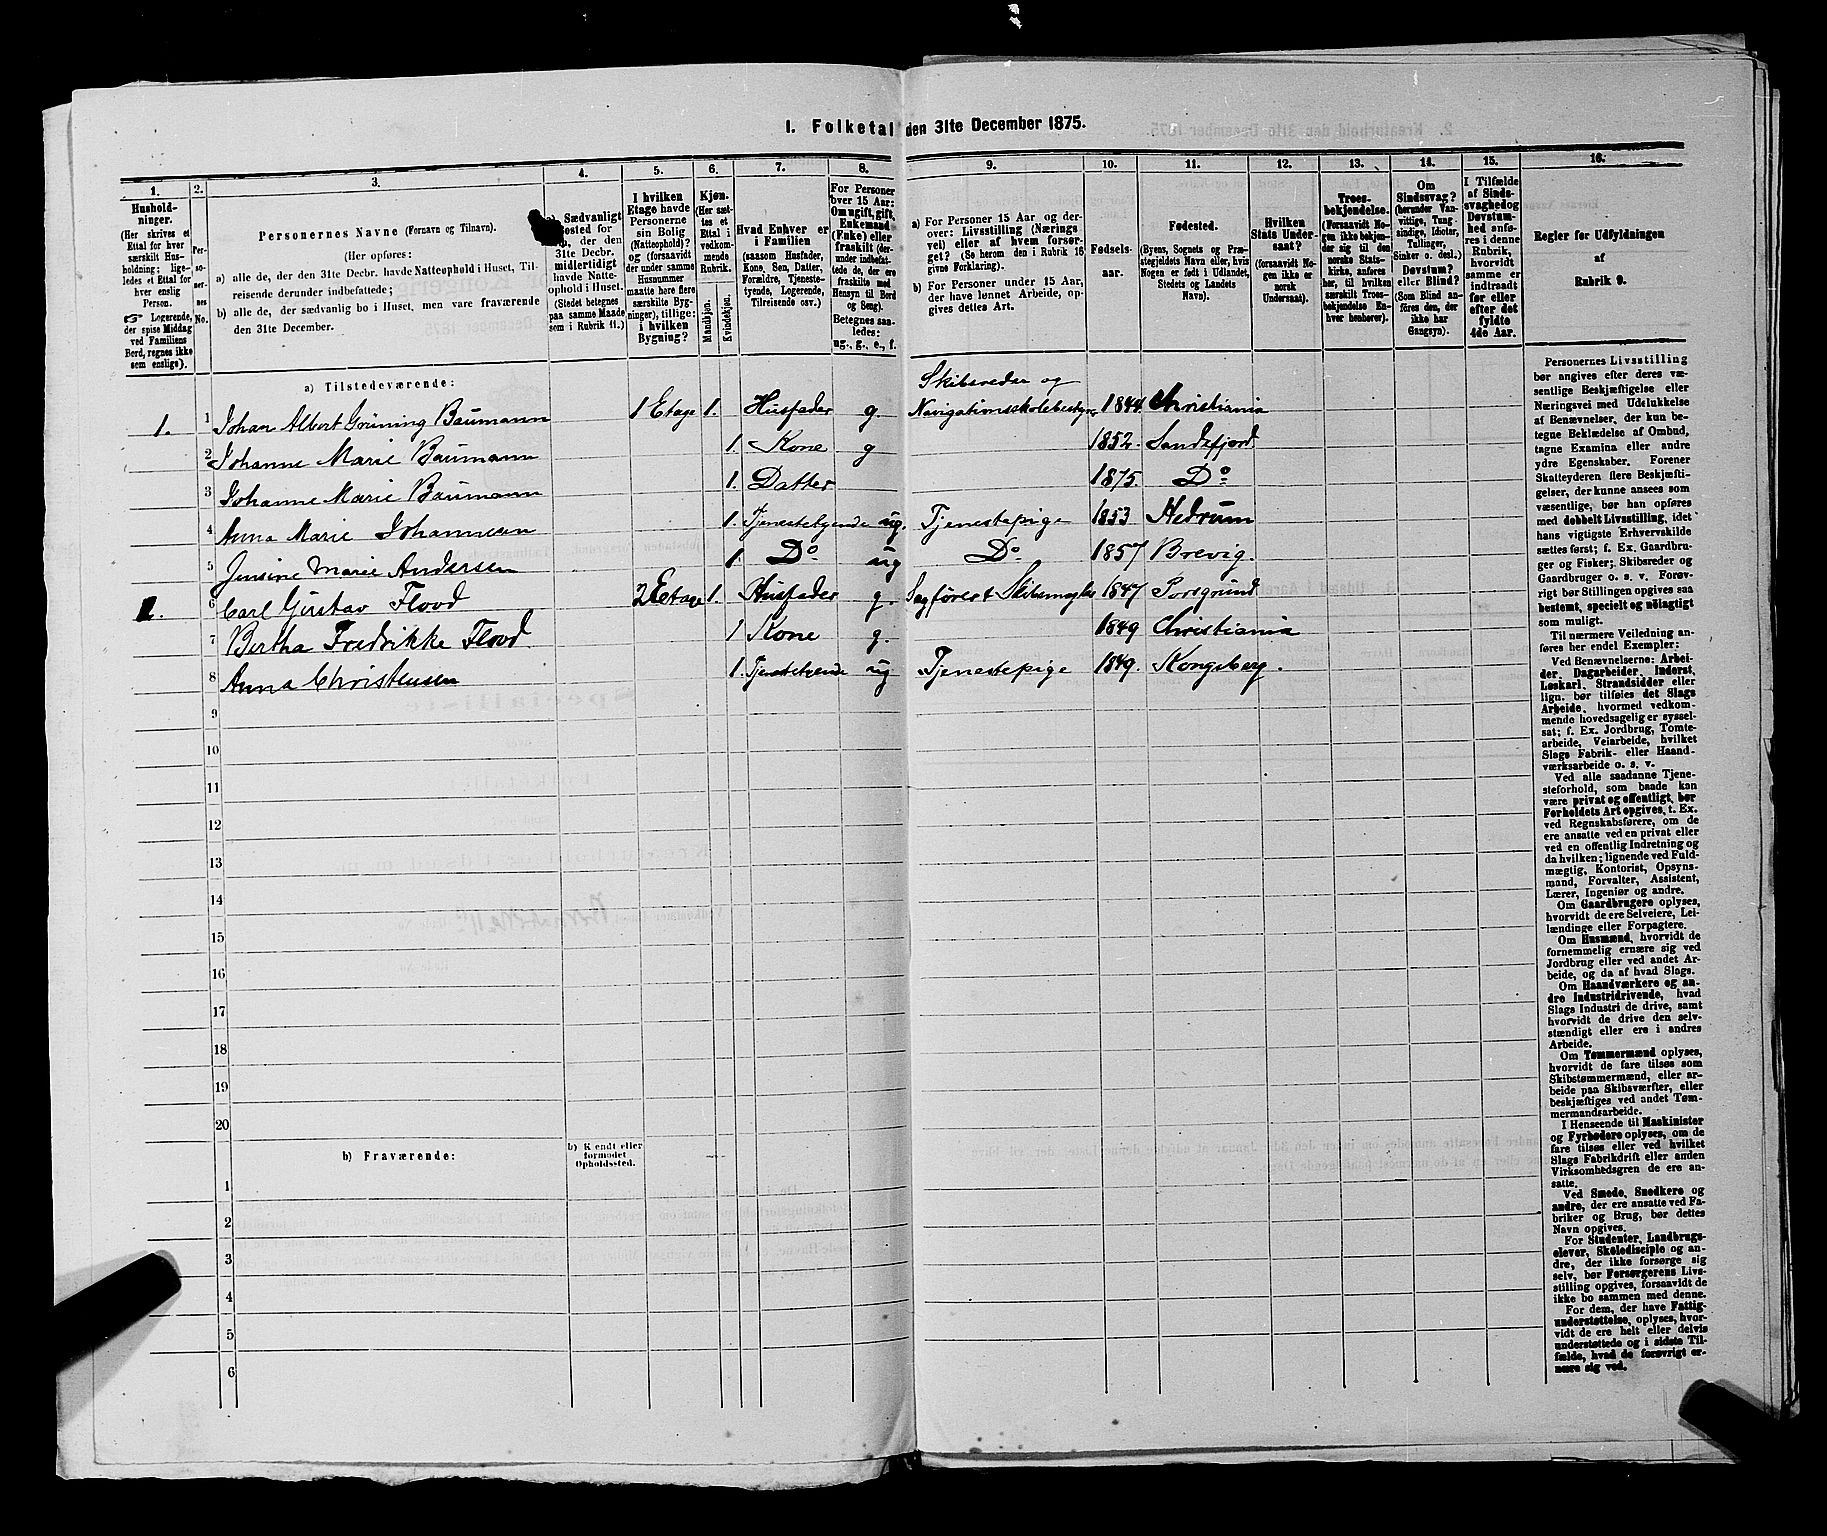 I. Folketal den 31te December 1875.
1. 2. 3. 4. 5. 6. 7. 8. 9. 10. 11. 12. 13. 14. 15. 16.
Hushold-
ninger.
(Her skrives et
Ettal for hver
særskilt Hus-
holdning; lige-
ledes et Ettal for
hver enslig
Person.
☞ Logerende,
der spise Middag
ved Familiens
Bord, regnes ikke
som enslige).
Per-
so-
ner-
nes
No.
Personernes Navne (Fornavn og Tilnavn).
(Her opføres:
a) alle de, der den 31te Decbr. havde Natteophold i Huset, Til-
reisende derunder indbefattede;
b) alle de, der sædvanlig bo i Huset, men vare fraværende
den 31te December.
Sædvanligt
Bosted for
de, der den
31te Decbr.
midlertidigt
havde Natte-
ophold i Huset.
(Stedet betegnes
paa samme Maade
som i Rubrik 11.)
I hvilken
Etage havde
Personerne
sin Bolig
(Natteophold)?
og (forsaavidt
der under samme
Husnummer
maatte høre flere
særskilte Byg-
ninger), tillige:
i hvilken
Bygning?
Kjøn.
(Her sæt-
tes et
Ettal i
vedkom-
mende
Rubrik.
Mandkjøn.
Kvindekjøn.
Hvad Enhver er
i Familien
(saasom Husfader,
Kone, Søn, Datter,
Forældre, Tjeneste-
tyende, Logerende,
Tilreisende osv.)
For Personer
over 15 Aar:
Om ugift, gift,
Enkemand
(Enke) eller
fraskilt (der-
under indbefat-
tede de, der ere
fraskilte med
Hensyn til Bord
og Seng).
Betegnes saa-
ledes:
ug., g., e., f.
a) For Personer 15 Aar og der-
over: Livsstilling (Nærings
vei) eller af hvem forsør-
get? (Se herom den i Rubrik 16
givne Forklaring).
b) For Personer under 15 Aar,
der have lønnet Arbeide, op-
gives dettes Art.
Fødsels-
aar.
Fødested.
(Byens, Sognets og Præ-
stegjeldets Navn eller, hvis
Nogen er født i Udlandet,
Stedets og Landets
Navn).
Hvilken
Stats Under-
saat?
(forsaavidt No-
gen ikke er
norsk
Undersaat).
Troes-
bekjendelse.
(Forsaavidt No-
gen ikke bekjen-
der sig til den
norske Stats-
kirke, anføres
her, til hvilken
særskilt Troes-
bekjendelse En-
hver henhører).
Om
Sindssvag?
(herunder Van-
vittige, Tung-
sindige, Idioter,
Tullinger,
Sinker o. desl.)
Døvstum?
eller Blind?
(Som Blind an-
føres den, der
ikke har
Gangsyn).
I Tilfælde
af Sinds-
svaghed og
Døvstum-
hed anfø-
res i denne
Rubrik,
hvorvidt
samme er
indtraadt
før eller
efter det
fyldte
4de Aar.
Regler for Udfyldningen
af
Rubrik 9.
a) Tilstedeværende:
Skibsreder og
1. 1 Johan Albert Grüning Baumann 1 Etage 1. Husfader g. Navigationsskolebestyrer 1844. Christiania
2 Johanne Marie Baumann 1. Kone g 1852. Sandefjord.
3 Johanne Marie Baumann 1. Datter 1875. Do
4 Anna Marie Johannesen 1. Tjenestetyende ug. Tjenestepige 1853. Hedrum
5 Jensine Marie Andersen 1. Do ug Do 1857 Brevig.
2. 6 Carl Gustav Flood 2 Etage 1. Husfader g. Sagfører & Skibsmægler 1847 Porsgrund
7 Bertha Fredrikke Flood. 1 Kone g. 1849 Christiania
8 Anna Christensen 1. Tjenestetyende ug Tjenestepige 1849. Kongsberg.
9
10
11
12
13
14
15
16
17
18
19
20
b) Fraværende:
b) Kjendt eller
formodet
Opholdssted.
1
2
3
4
5
6
Personernes Livsstilling
bør angives efter deres væ-
sentlige Beskjæftigelse eller
Næringsvei med Udelukkelse
af Benævnelser, der kun be-
tegne Beklædelse af Ombud,
tagne Examina eller andre
ydre Egenskaber. Forener
Skatteyderen flere Beskjæfti-
gelser, der kunne ansees som
væsentlige, bør han opføres
med dobbelt Livsstilling, idet
hans vigtigste Erhvervskilde
sættes først; f. Ex. Gaardbru-
ger og Fisker; Skibsreder og
Gaardbruger o. s. v. Forøv-
rigt bør Stillingen opgives saa
bestemt, specielt og nøiagtigt
som muligt.
Til nærmere Veiledning an-
føres her endel Exempler:
Ved Benævnelserne: Arbei-
der, Dagarbeider, Inderst,
Løskarl, Strandsidder eller
lign. bør tilføies det Slags
Arbeide, hvormed vedkom-
mende hovedsagelig er syssel-
sat; f. Ex. Jordbrug, Tomte-
arbeide, Veiarbeide, hvilket
Slags Fabrik- eller Haand-
værksarbeide o. s. v.
Ved alle saadanne Tjene-
steforhold, som baade kan
være privat og offentligt, bør
Forholdets Art opgives, t. Ex.
ved Regnskabsførere, om de
ere ansatte ved en privat eller
ved en offentlig Indretning og
da hvilken; lignende ved Fuld-
mægtig, Kontorist, Opsyns-
mand, Forvalter, Assistent,
Lærer, Ingeniør og andre.
Om Gaardbrugere oplyses,
hvorvidt de ere Selveiere, Lei-
lændinge eller Forpagtere.
Om Husmænd, hvorvidt de
fornemmelig ernære sig ved
Jordbrug eller ved andet Ar-
beide, og da af hvad Slags.
Om Haandværkere og an-
dre Industridrivende, hvad
Slags Industri de drive, samt
hvorvidt de drive den selv-
stændigt eller ere i andres
Arbeide.
Om Tømmermænd oplyses,
hvorvidt de fare tilsøs som
Skibstømmermænd, eller ar-
beide paa Skibsværfter, eller
beskjæftiges ved andet Tøm-
mermandsarbeide.
I Henseende til Maskinister
og Fyrbødere oplyses, om de
fare tilsøs eller ved hvilket
Slags Fabrikdrift eller anden
Virksomhedsgren de ere an-
satte.
Ved Smede, Snedkere og
andre, der ere ansatte ved Fa-
briker og Brug, bør dettes
Navn opgives.
For Studenter, Landbrugs-
elever, Skoledisciple og an-
dre, der ikke forsørge sig
selv, bør Forsørgerens Livs-
stilling opgives, forsaavidt de
ikke bo sammen med denne.
For dem, der have Fattig-
understøttelse, oplyses, hvor-
vidt de ere helt eller delvis
understøttede og i sidste Til-
fælde, hvad de forøvrigt er-
nære sig ved.